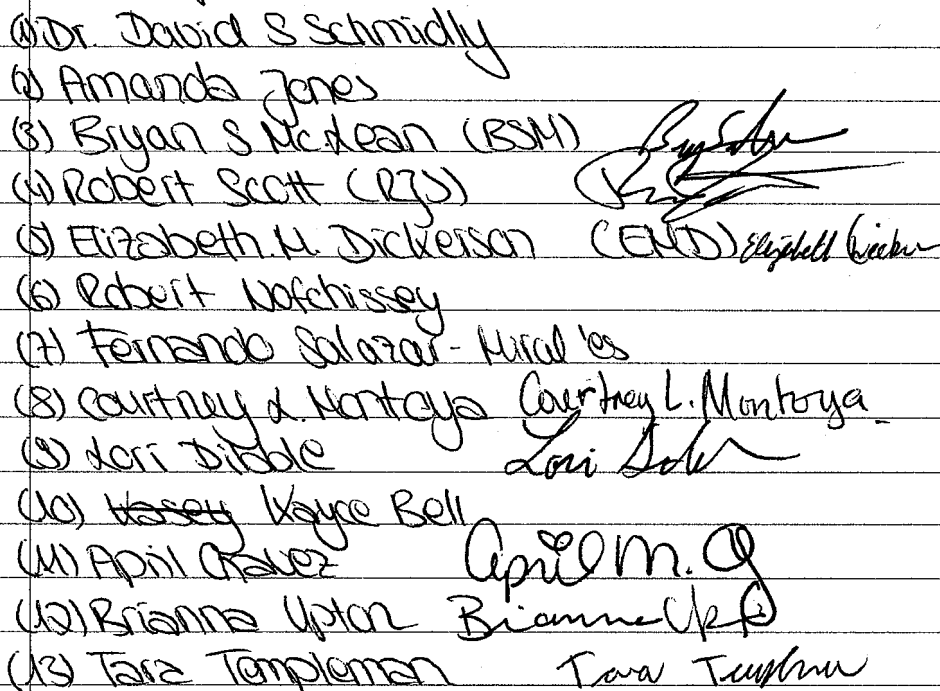 (1) Dr. David S Schmidly
(2) Amanda Jones
(3) Bryan S McLean (BSM)
(4) Robert Scott (RJS)
(5) Elizabeth. M. Dickerson (EMD) Elizabeth
(6) Robert Nofchissey
(7) Fernando Salazar-Miral'es
(8) Courtney L. Montoya Courtney L. Montoya
(9) Lori Dibble Lori
(10) Kasey Kayce Bell
(11) April Chavez April M. C
(12) Brianna Upton Brianna
(13) Tara Templeman Tara